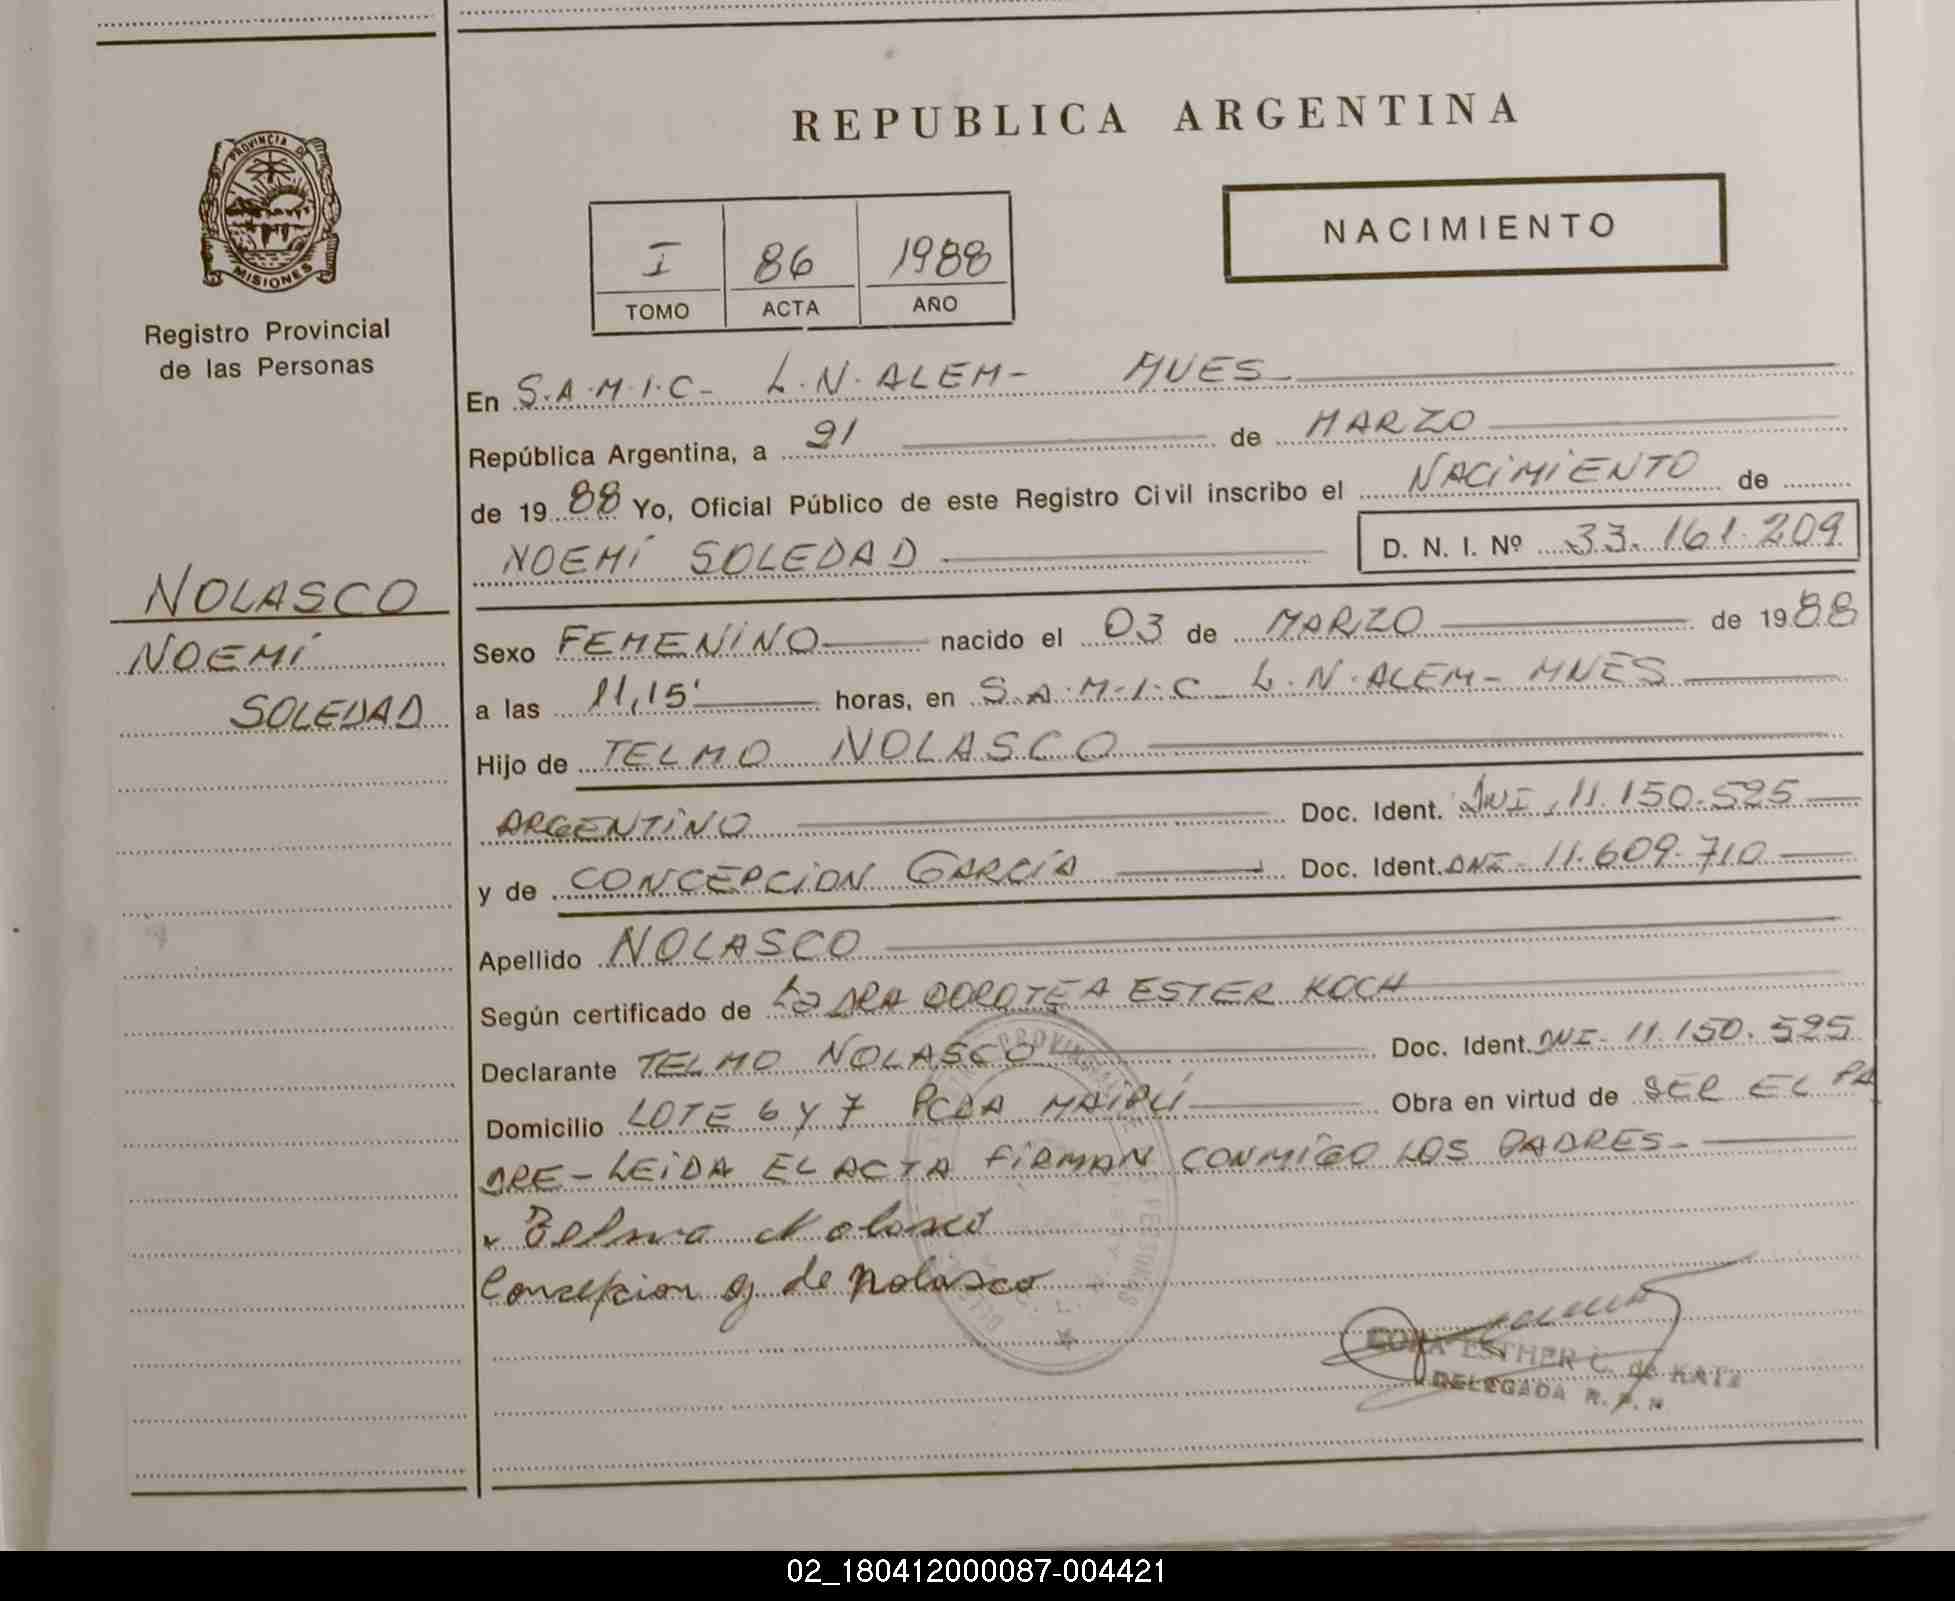 REPUBLICA ARGENTINA
PROVINCIA DE
MISIONES
Registro Provincial
de las Personas
I 86 1988
TOMO ACTA AÑO
NACIMIENTO
En S.A.M.I.C- L.N.ALEM- MNES
República Argentina, a 21 de MARZO
de 1988 Yo, Oficial Público de este Registro Civil inscribo el NACIMIENTO de
NOEMÍ SOLEDAD D. N. I. Nº 33.161.209
NOLASCO
NOEMÍ
SOLEDAD
Sexo FEMENINO nacido el 03 de MARZO de 1988
a las 11,15' horas, en S.A.M.I.C L.N.ALEM- MNES
Hijo de TELMO NOLASCO
ARGENTINO Doc. Ident. DNI. 11.150.525
y de CONCEPCION GARCÍA Doc. Ident. DNI- 11.609.710
Apellido NOLASCO
Según certificado de La DRA DOROTEA ESTER KOCH
Declarante TELMO NOLASCO Doc. Ident. DNI- 11.150.525
Domicilio LOTE 6 Y 7 PCDA MAIPÚ Obra en virtud de SER EL PA
DRE- LEIDA EL ACTA FIRMAN CONMIGO LOS PADRES-
Telmo Nolasco
Concepcion g de Nolasco
ESTHER C. de KATZ
DELEGADA R. P.
02_180412000087-004421